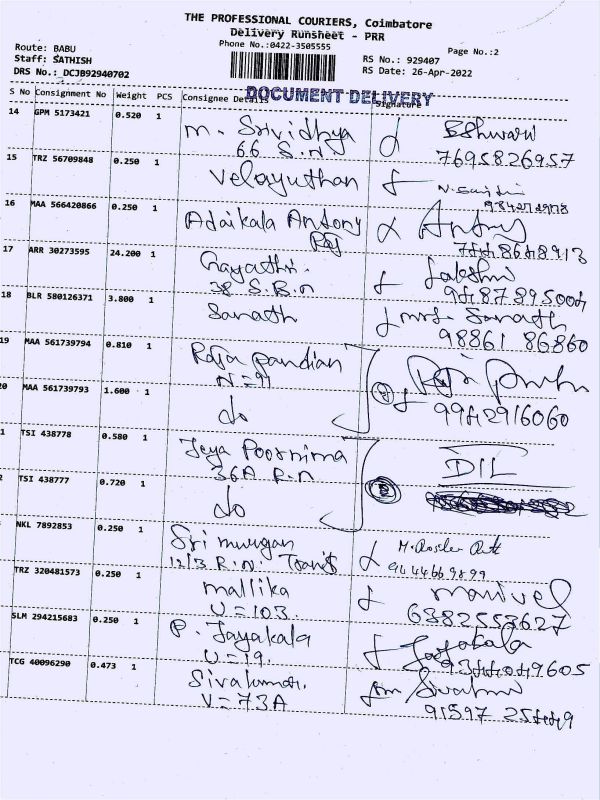 THE PROFESSIONAL COURIERS, Coimbatore
Delivery Runsheet - PRR
Phone No.:0422-3505555
Page No.:2
Route: BABU
Staff: SATHISH
DRS No.: DCJB92940702
RS No.: 929407
RS Date: 26-Apr-2022
DOCUMENT DELIVERY
S No Consignment No Weight PCS Consignee Details Signature
14 GPM 5173421 0.520 1 M. Srividhya Eshwari
66 S.N 7695826957
15 TRZ 56709848 0.250 1 Velayuthan
16 MAA 566420866 0.250 1 Adaikala Antony Antony
Raj
17 ARR 30273595 24.200 1 Gayathri. Lakshmi
38 S.B.n
18 BLR 580126371 3.800 1 Sarath mrs. Sarath
98861 86860
19 MAA 561739794 0.810 1 Raja pandian
N=91
20 MAA 561739793 1.600 1 do 9942916060
1 TSI 438778 0.580 1 Jeya Poornima DIL
36A R.n
2 TSI 438777 0.720 1 do
NKL 7892853 0.250 1 Sri murugan
12/3 R.N. 9444669899
TRZ 320481573 0.250 1 mallika manivel
U=103. 6382553627
SLM 294215683 0.250 1 P. Jayakala Jayakala
U=19.
TCG 40096290 0.473 1 Sivakumar.
V=73A